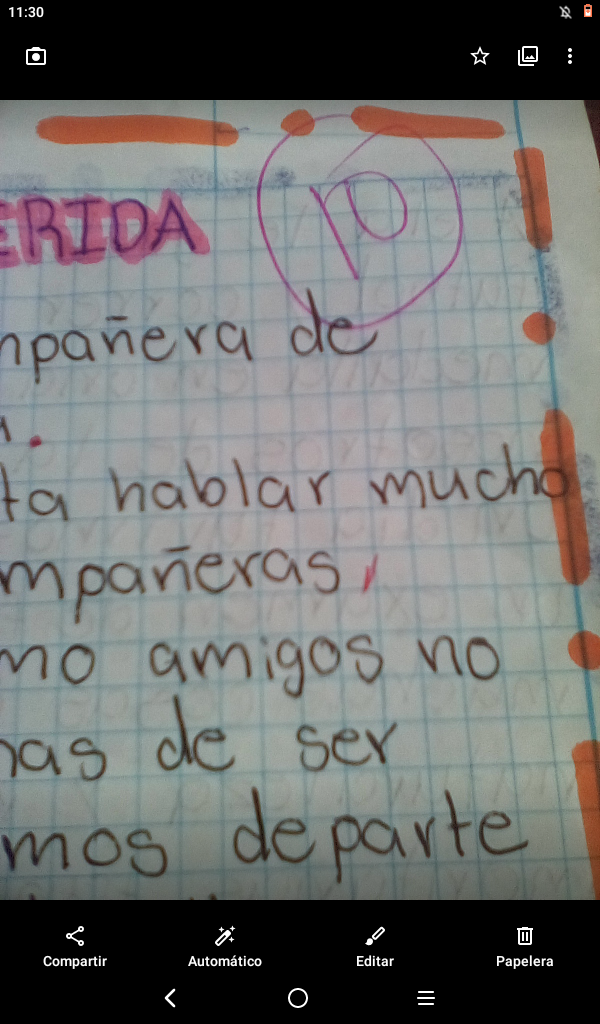 11:30
ERIDA
10
mpañera de
a.
ta hablar mucho
mpañeras,
mo amigos no
nas de ser
mos departe
Compartir
Automático
Editar
Papelera